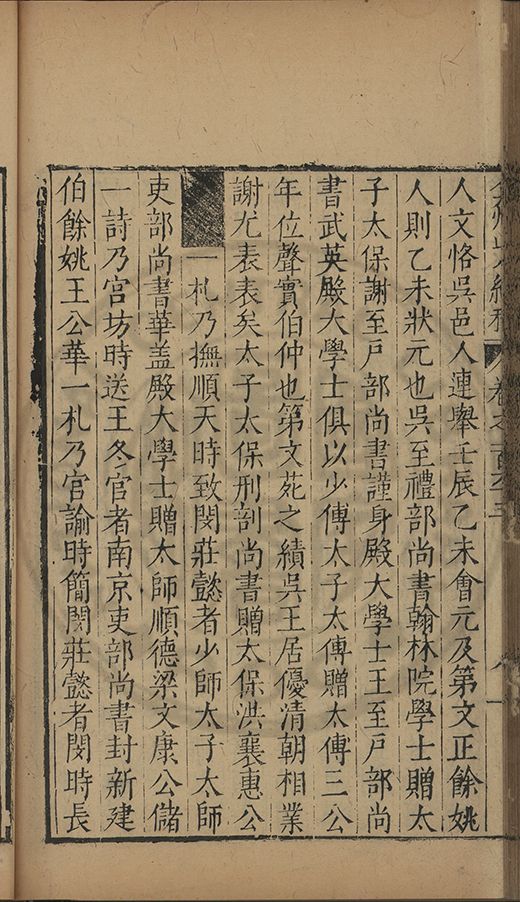 弇州山人續稿 卷之一百六十五 八
人文恪吳邑人連舉壬辰乙未會元及第文正餘姚
人則乙未狀元也吳至禮部尚書翰林院學士贈太
子太保謝至戶部尚書謹身殿大學士王至戶部尚
書武英殿大學士俱以少傅太子太傅贈太傅三公
年位聲實伯仲也第文苑之績吳王居優清朝相業
謝尤表表矣太子太保刑部尚書贈太保洪襄惠公
一札乃撫順天時致閔莊懿者少師太子太師
吏部尚書華盖殿大學士贈太師順德梁文康公儲
一詩乃宮坊時送王冬官者南京吏部尚書封新建
伯餘姚王公華一札乃宮諭時簡閔莊懿者閔時長